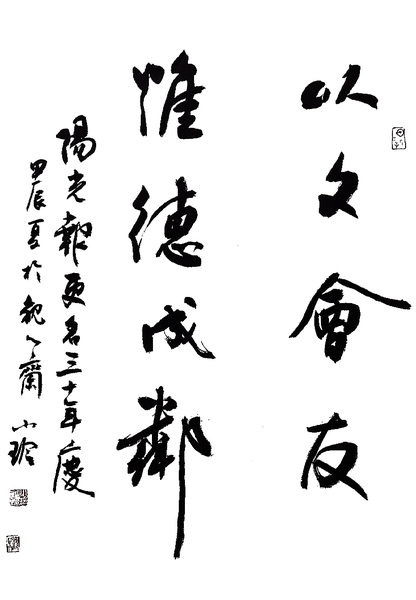 以文會友
惟德成鄰
陽光報更名三十年慶
甲辰夏於觀人齋 小珍